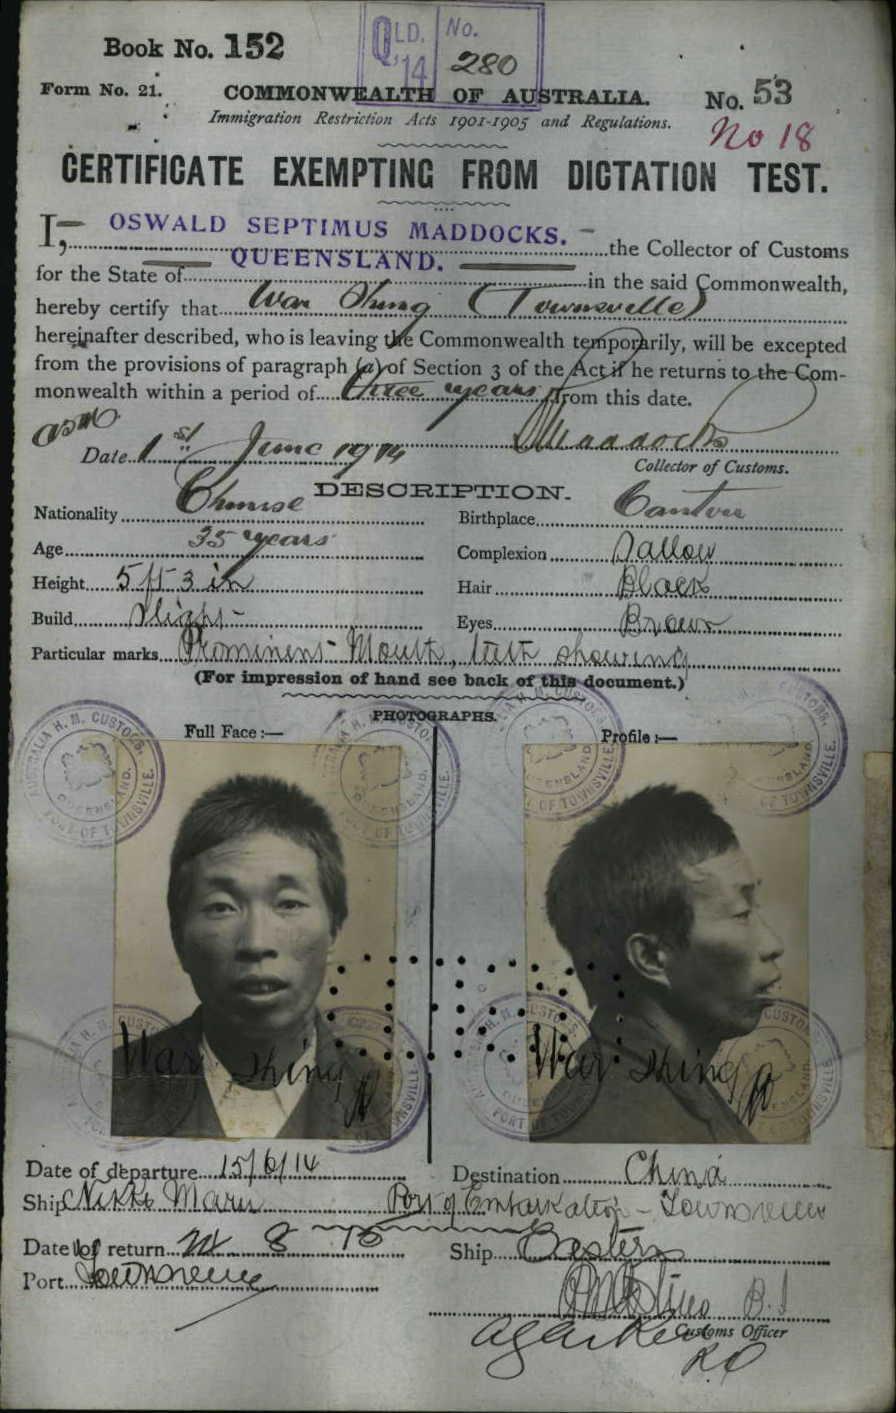 Book No. 152
QLD. '14 No. 280
Form No. 21.
COMMONWEALTH OF AUSTRALIA.
No. 53
Immigration Restriction Acts 1901-1905 and Regulations.
No 18
CERTIFICATE EXEMPTING FROM DICTATION TEST.
I, OSWALD SEPTIMUS MADDOCKS. the Collector of Customs
for the State of QUEENSLAND. in the said Commonwealth,
hereby certify that War Shing (Townsville)
hereinafter described, who is leaving the Commonwealth temporarily, will be excepted
from the provisions of paragraph (a) of Section 3 of the Act if he returns to the Com-
monwealth within a period of three years from this date.
Date 1st June 1914 Maddocks
Collector of Customs.
DESCRIPTION.
Nationality Chinese Birthplace Canton
Age 35 years Complexion Sallow
Height 5 ft 3 in Hair Black
Build Slight- Eyes Brown
Particular marks Prominent Mouth, teeth showing
(For impression of hand see back of this document.)
PHOTOGRAPHS.
Full Face :— Profile :—
AUSTRALIA H. M. CUSTOMS. QUEENSLAND. PORT OF TOWNSVILLE.
War Shing War Shing
Date of departure 15/6/14 Destination China
Ship Nikko Maru Port of Embarkation - Townsville
Date of return 8 Ship Eastern
Port Townsville
B.I
Customs Officer